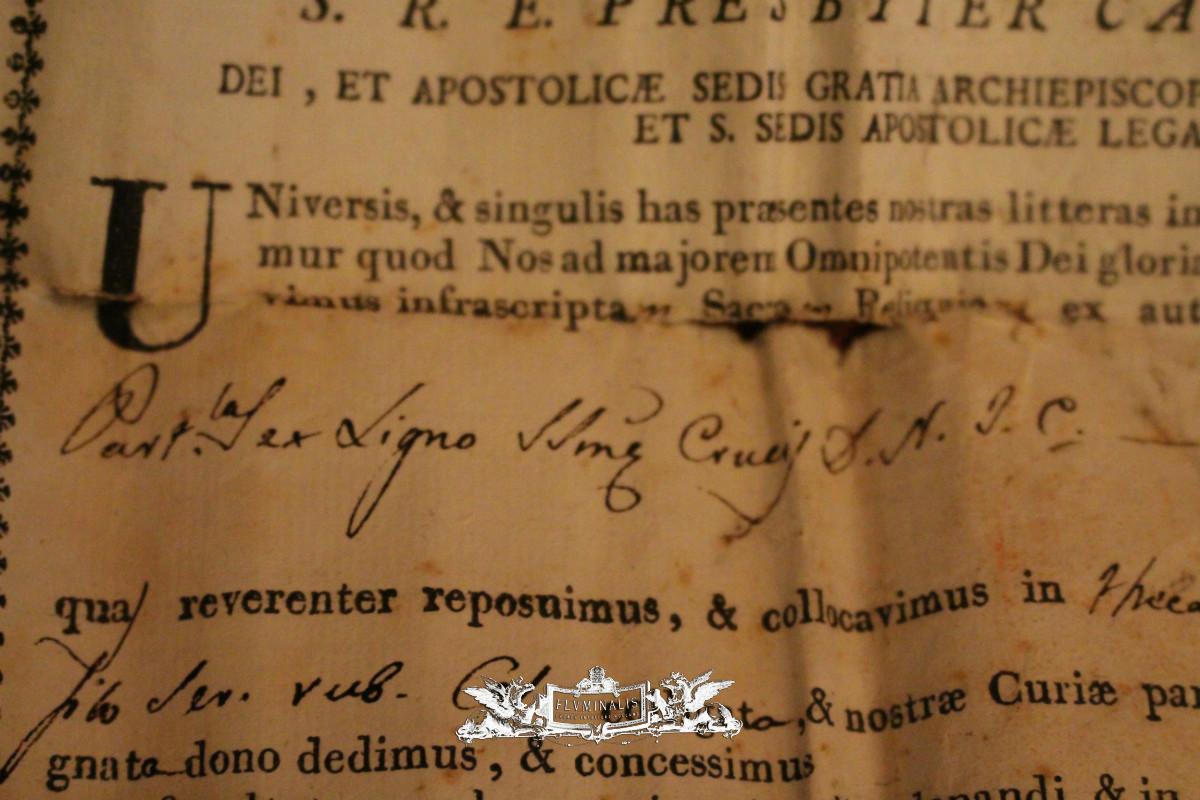 S. R. E. PRESBYTER CA
DEI , ET APOSTOLICÆ SEDIS GRATIA ARCHIEPISCOP
ET S. SEDIS APOSTOLICÆ LEGA
UNiversis, & singulis has præsentes nostras litteras in
mur quod Nos ad majorem Omnipotentis Dei gloria
vimus infrascripta Sacra Reliquia ex aut
Part.las ex Ligno SSmę Crucis D. N. J. C.
quas reverenter reposuimus, & collocavimus in
filo ser. rub.
FLVMINALIS
, & nostræ Curiæ par
gnata dono dedimus, & concessimus
& in